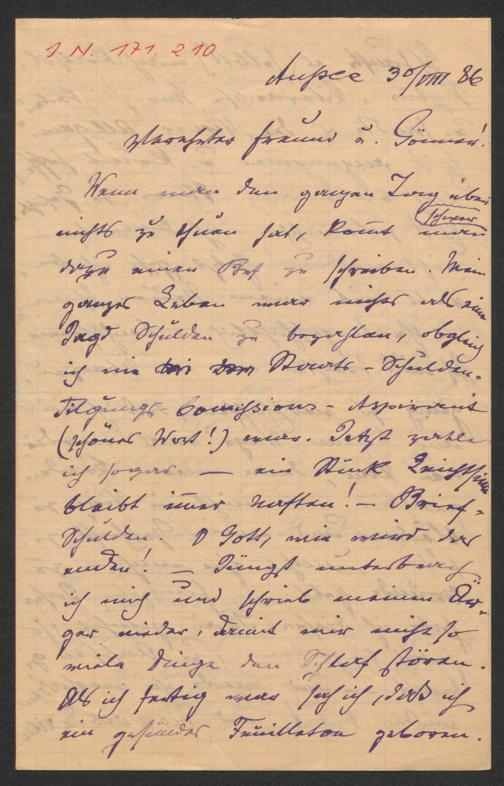 I.N. 171.210
Aussee 30/VIII 86
Verehrter Freund u. Gönner!
Wenn man den ganzen Tag über
nichts zu thuen hat, komt man schwer
dazu einen Brief zu schreiben. Mein
ganzes Leben war nichts als eine
Jagd Schulden zu bezahlen, obgleich
ich nie bei der Staats-Schulden-
Tilgungs-Comissions-Aspirant
(schönes Wort!) war. Jetzt zahle
ich sogar — ein Stück Leichtsinn
bleibt imer haften! — Brief-
Schulden. O Gott, wie wird das
enden! — Jüngst unterbrach
ich mich und schrieb meinen Är-
ger nieder, damit mir nicht so
viele Dinge den Schlaf stören.
Als ich fertig war sah ich, daß ich
ein gesundes Feuilleton geboren.